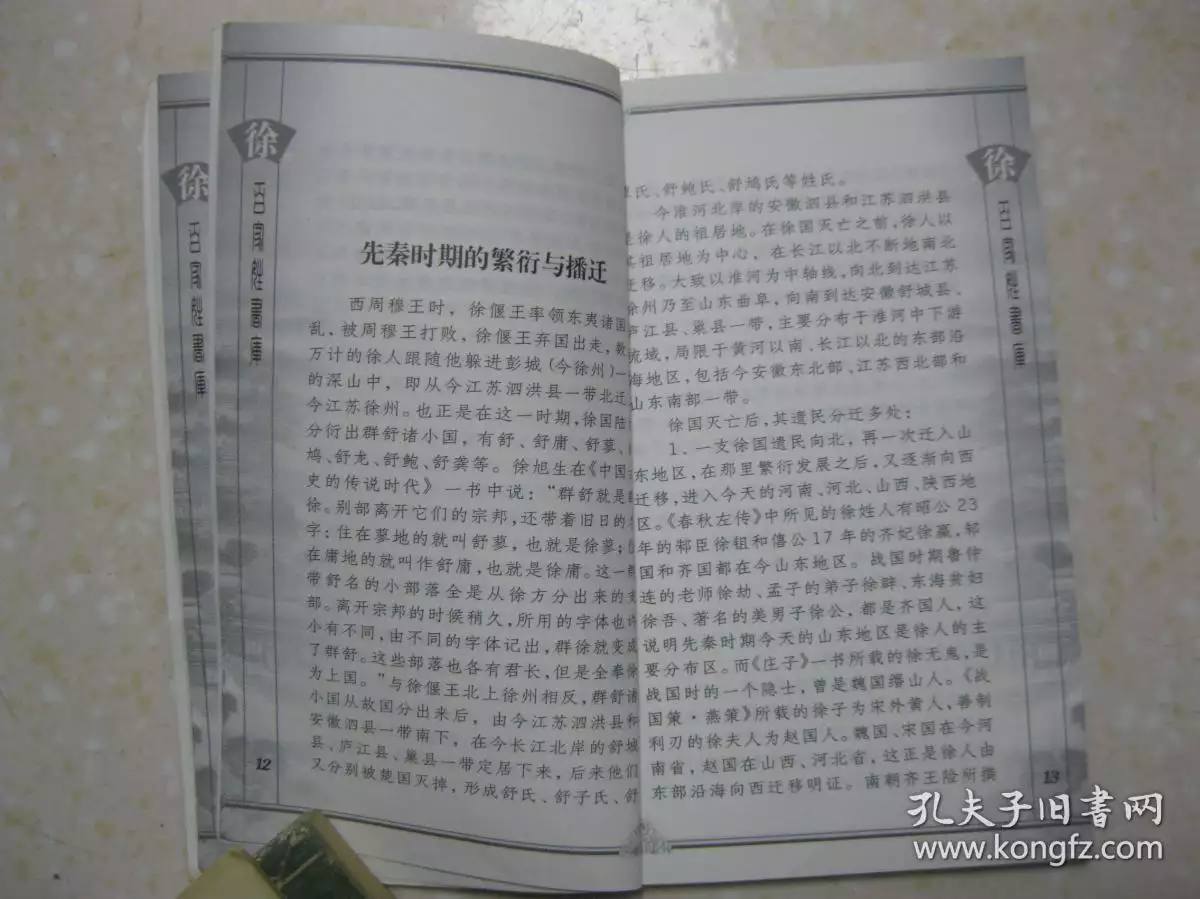 徐
百家姓書庫
徐
百家姓書庫
先秦时期的繁衍与播迁
西周穆王时，徐偃王率领东夷诸国
乱，被周穆王打败，徐偃王弃国出走，数
万计的徐人跟随他躲进彭城(今徐州)一
的深山中，即从今江苏泗洪县一带北迁
今江苏徐州。也正是在这一时期，徐国陆
分衍出群舒诸小国，有舒、舒庸、舒蓼、
鸠、舒龙、舒鲍、舒龚等。徐旭生在《中国
史的传说时代》一书中说：“群舒就是
徐。别部离开它们的宗邦，还带着旧日的
字：住在蓼地的就叫舒蓼，也就是徐蓼；
在庸地的就叫作舒庸，也就是徐庸。这一
带舒名的小部落全是从徐方分出来的
部。离开宗邦的时候稍久，所用的字体也许
小有不同，由不同的字体记出，群徐就变成
了群舒。这些部落也各有君长，但是全奉徐
为上国。”与徐偃王北上徐州相反，群舒诸
小国从故国分出来后，由今江苏泗洪县和
安徽泗县一带南下，在今长江北岸的舒城
县、庐江县、巢县一带定居下来，后来他们
又分别被楚国灭掉，形成舒氏、舒子氏、舒
12
氏、舒鲍氏、舒鸠氏等姓氏。
今淮河北岸的安徽泗县和江苏泗洪县
是徐人的祖居地。在徐国灭亡之前，徐人以
其祖居地为中心，在长江以北不断地南北
迁移。大致以淮河为中轴线，向北到达江苏
徐州乃至山东曲阜，向南到达安徽舒城县、
庐江县、巢县一带，主要分布于淮河中下游
流域，局限于黄河以南、长江以北的东部沿
海地区，包括今安徽东北部、江苏西北部和
山东南部一带。
徐国灭亡后，其遗民分迁多处：
1．一支徐国遗民向北，再一次迁入山
东地区，在那里繁衍发展之后，又逐渐向西
迁移，进入今天的河南、河北、山西、陕西地
区。《春秋左传》中所见的徐姓人有昭公23
年的邾臣徐钼和僖公17年的齐妃徐嬴，邾
国和齐国都在今山东地区。战国时期鲁仲
连的老师徐劫、孟子的弟子徐辟、东海贫妇
徐吾、著名的美男子徐公，都是齐国人，这
说明先秦时期今天的山东地区是徐人的主
要分布区。而《庄子》一书所载的徐无鬼，是
战国时的一个隐士，曾是魏国缗山人。《战
国策·燕策》所载的徐子为宋外黄人，善制
利刃的徐夫人为赵国人。魏国、宋国在今河
南省，赵国在山西、河北省，这正是徐人由
东部沿海向西迁移明证。南朝齐王险所撰
13
徐
百家姓書庫
孔夫子旧书网
www.kongfz.com